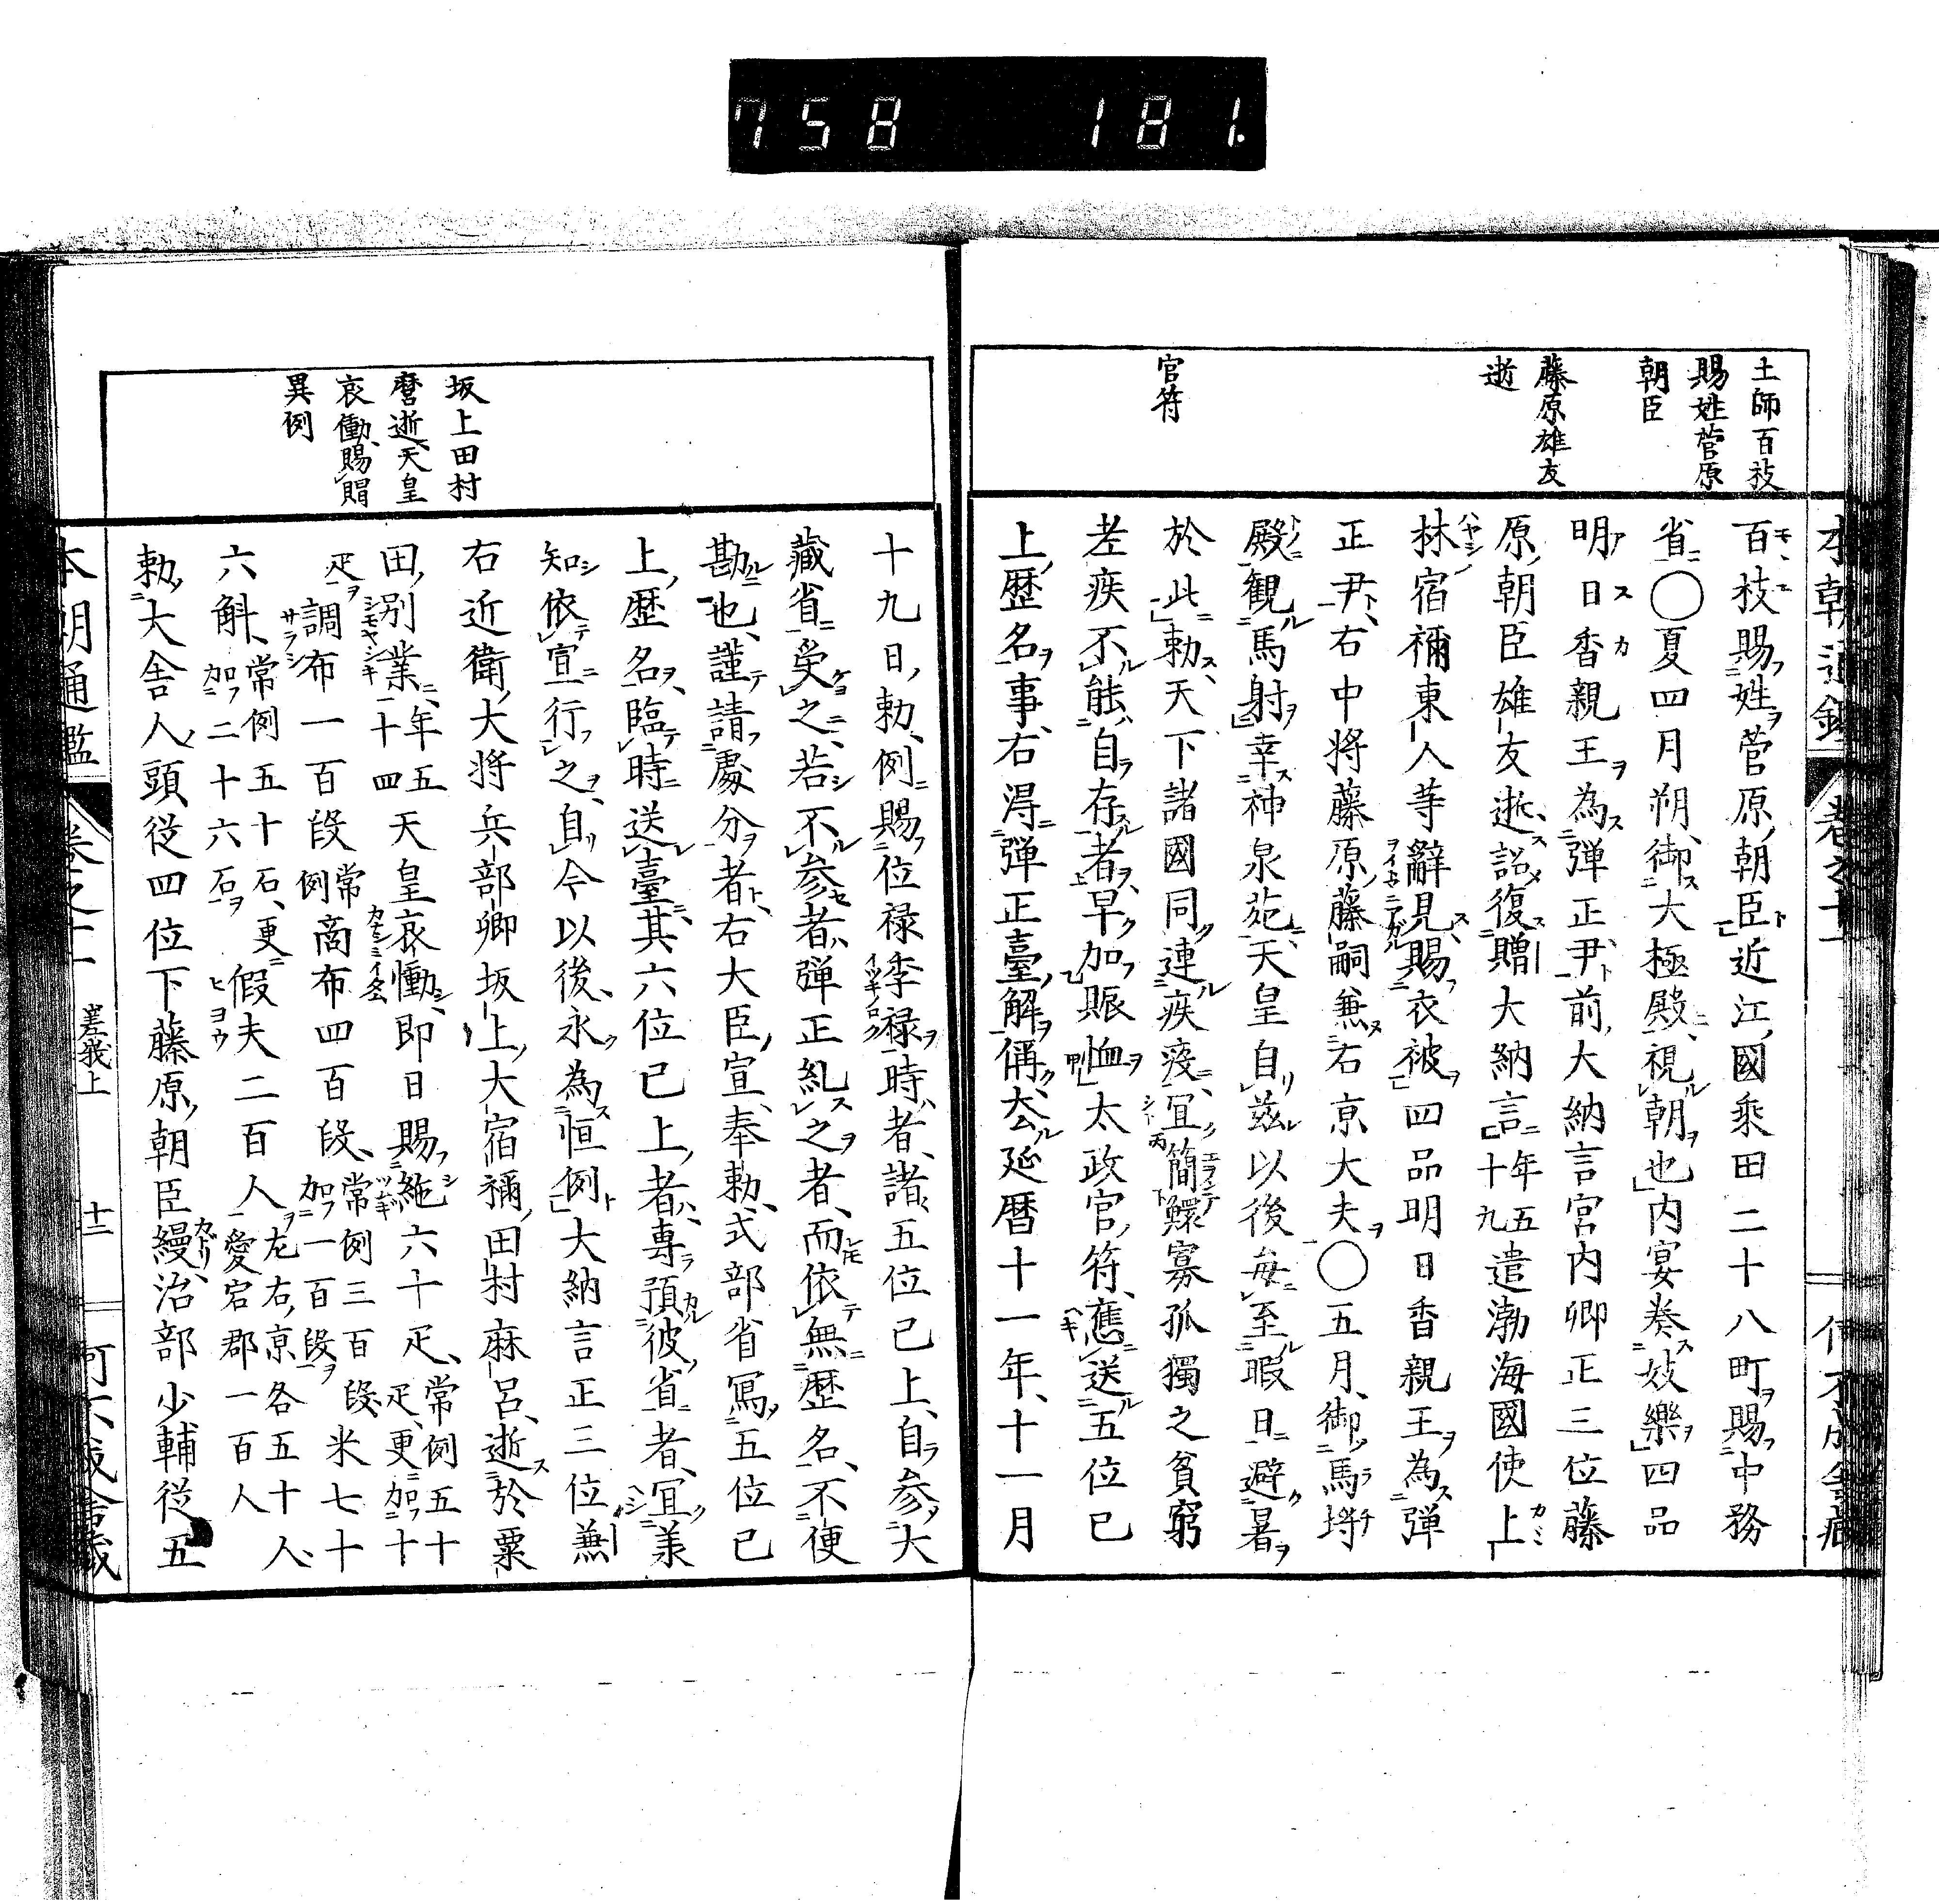 758 181.
土師百枝
賜姓菅原
朝臣
藤原雄友
逝
官符
百枝賜姓菅原朝臣近江國乘田二十八町賜中務
省○夏四月朔御大極殿視朝也内宴奏妓樂四品
明日香親王為弾正尹前大納言宮内卿正三位藤
原朝臣雄友逝詔復贈大納言年五十九遣渤海國使上
林宿禰東人等辭見賜衣被四品明日香親王為弾
正尹右中将藤原藤嗣兼右京大夫○五月御馬埒
殿觀馬射幸神泉苑天皇自兹以後毎至暇日避暑
於此勅天下諸國同連疾疫冝簡鰥寡孤獨之貧窮
老疾不能自存者早加賑恤太政官符應送五位已
上歴名事右得弾正臺解偁太延暦十一年十一月
坂上田村
麿逝天皇
哀慟賜賵
異例
十九日勅例賜位禄季禄時者諸五位已上自参大
藏省受之若不参者弾正糺之者而依無歴名不便
勘也謹請處分者右大臣宣奉勅式部省寫五位已
上歴名臨時送臺其六位已上者專預彼省者冝羕
知依宣行之自今以後永為恒例大納言正三位兼
右近衛大将兵部卿坂上大宿禰田村麻呂逝於粟
田別業年五十四天皇哀慟即日賜絁六十疋常例五十疋更加十
疋調布一百段常例商布四百段常例三百段加一百段米七十
六斛常例五十石更加二十六石假夫二百人左右京各五十人愛宕郡一百人
勅大舍人頭從四位下藤原朝臣縵治部少輔從五
本朝通鑑 嵯峨上 十二